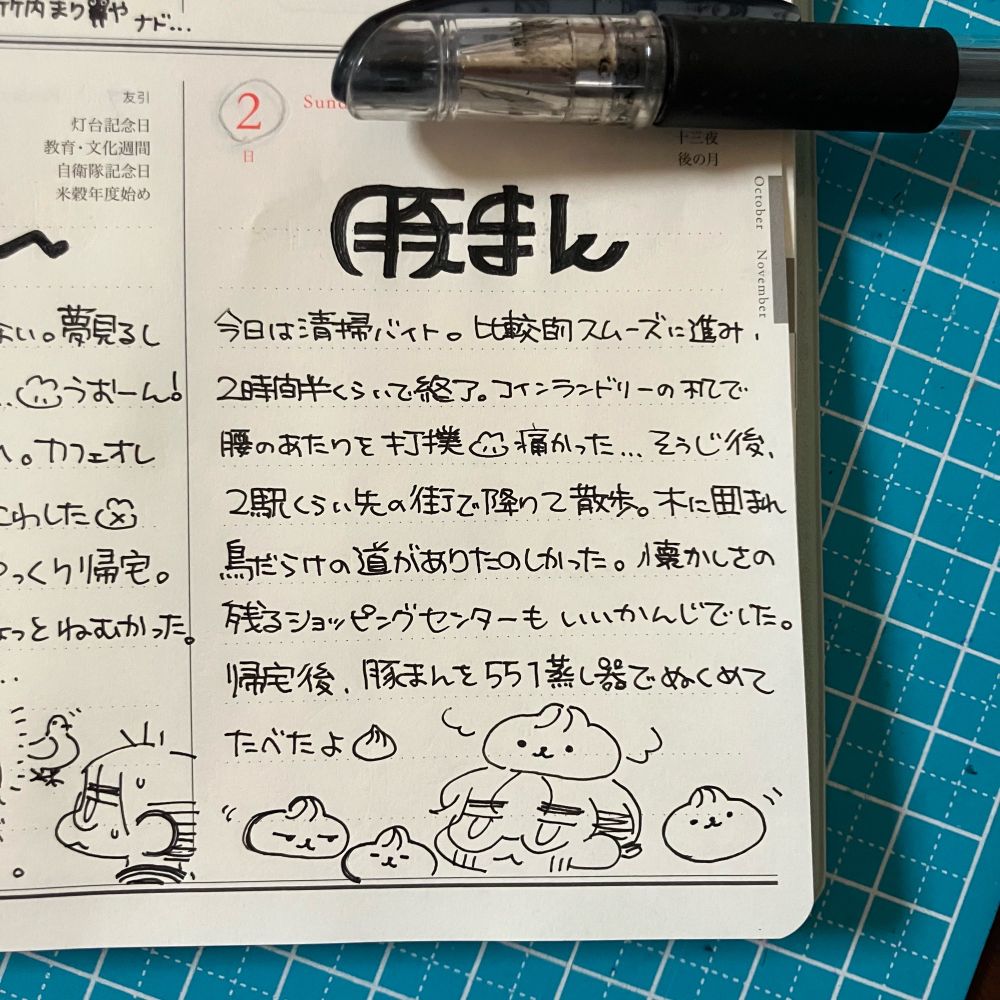 竹内まり
や
ナド…
友引
灯台記念日
教育・文化週間
自衛隊記念日
米穀年度始め
ない。夢見るし
…うおーん!
。カフェオレ
こわした
ゆっくり帰宅。
ちょっとねむかった。
2
日
十三夜
後の月
October
November
豚まん
今日は清掃バイト。比較的スムーズに進み、
2時間半くらいで終了。コインランドリーの机で
腰のあたりを打撲 痛かった…そうじ後、
2駅くらい先の街で降りて散歩。木に囲まれ
鳥だらけの道がありたのしかった。懐かしさの
残るショッピングセンターもいいかんじでした。
帰宅後、豚まんを551蒸し器でぬくめて
たべたよ